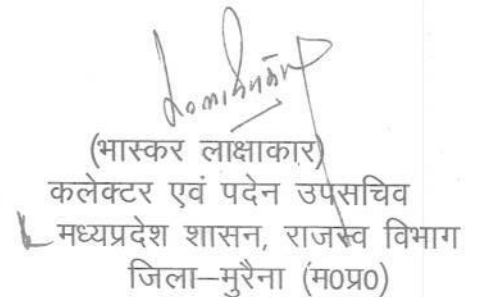 (भास्कर लाक्षाकार)
कलेक्टर एवं पदेन उपसचिव
मध्यप्रदेश शासन, राजस्व विभाग
जिला–मुरैना (म०प्र०)